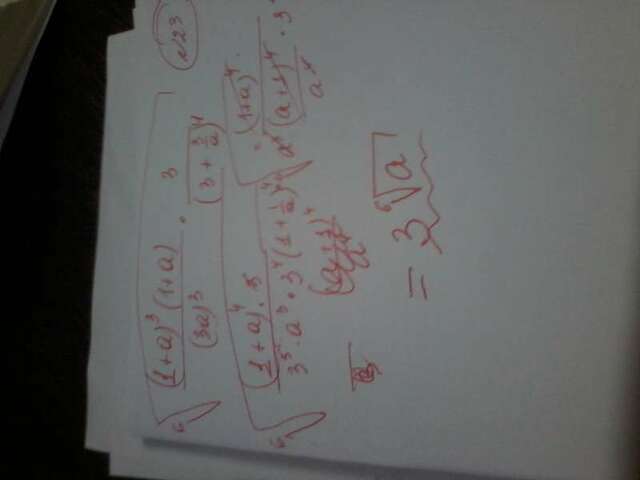 №23
\sqrt[6]{\frac{(1+a)^3(1+a)}{(3a)^3} \cdot \frac{3}{(3+\frac{3}{a})^4}}
\sqrt[6]{\frac{(1+a)^4 \cdot 3}{3^3 \cdot a^3 \cdot 3^4(1+\frac{1}{a})^4}} = \sqrt{\frac{(1+a)^4}{a^4 \frac{(a+1)^4}{a^4} \cdot 3}}
= 3\sqrt[6]{a}